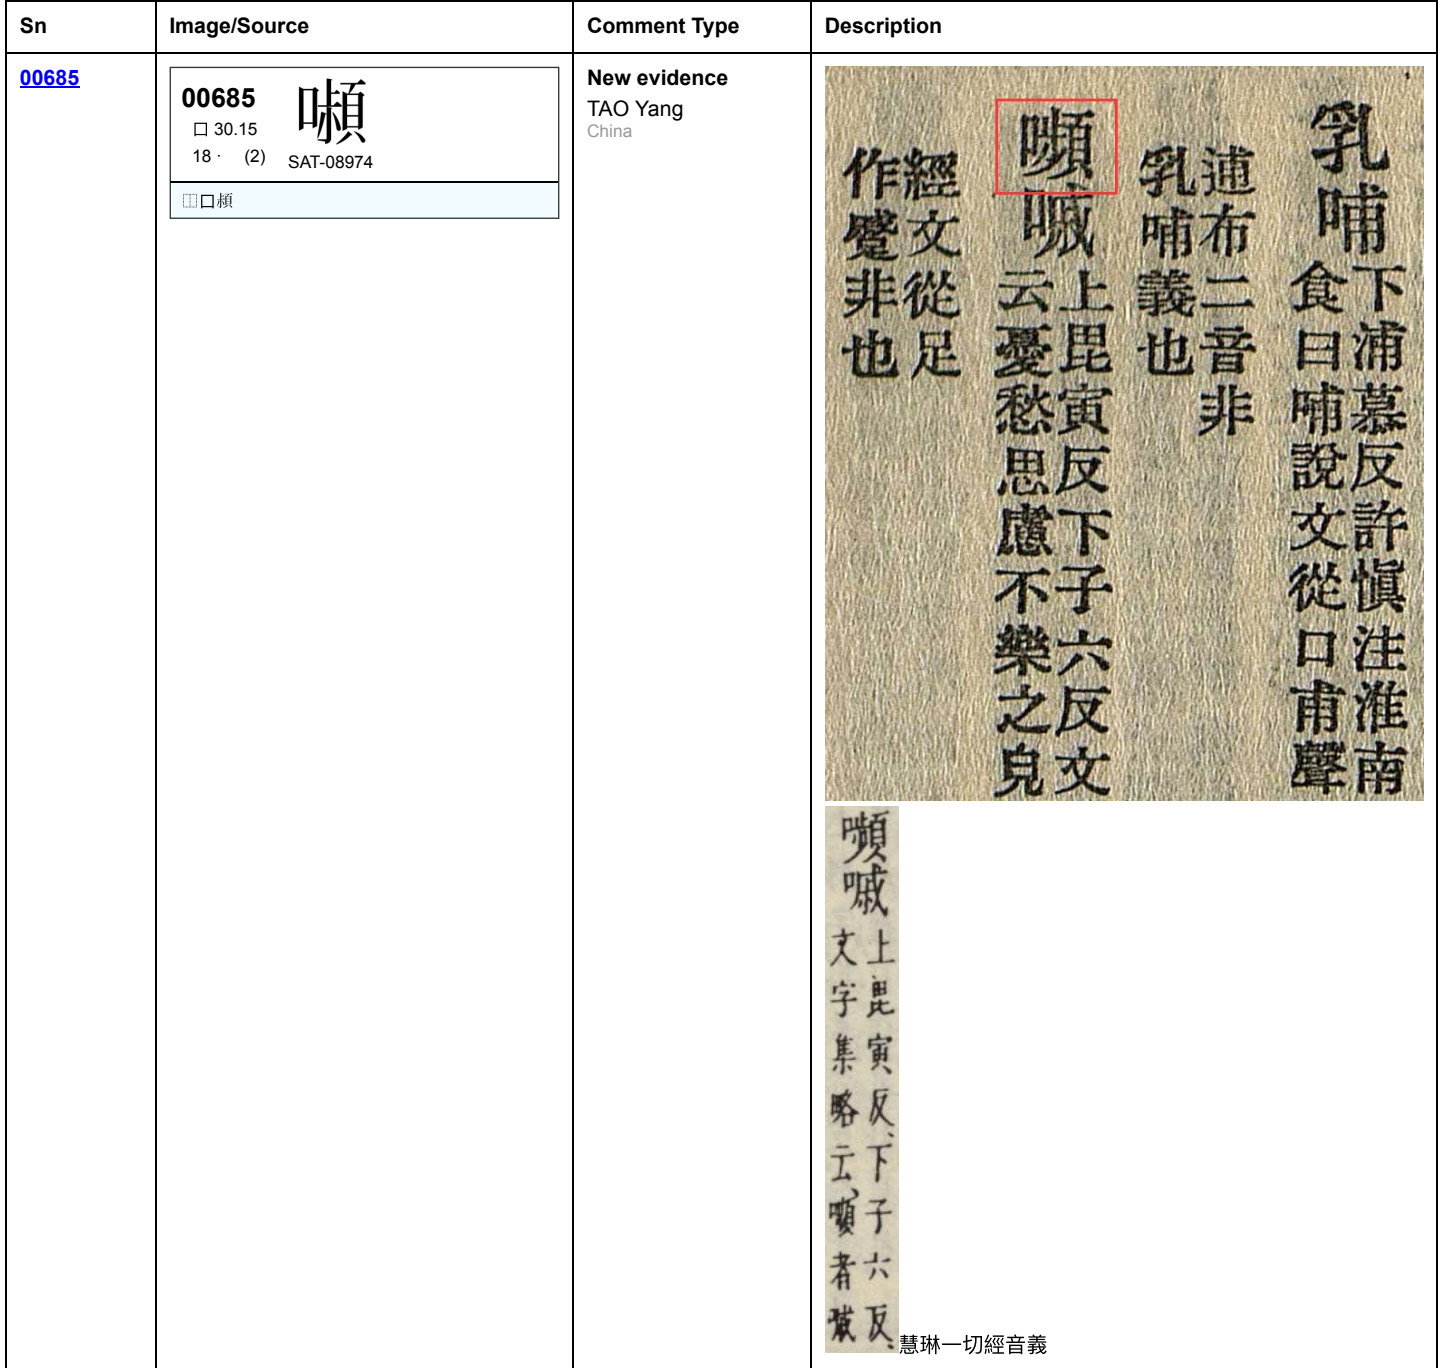 Sn
Image/Source
Comment Type
Description
00685
00685
口 30.15
18 · (2)
SAT-08974
⿰口
New evidence
TAO Yang
China
乳哺
下浦慕反許慎注淮南
食曰哺說文從口甫聲
逋布二音非
乳哺義也
嚬嘁
上毘寅反下子六反文
云憂愁思慮不樂之皃
經文從足
作蹙非也
嚬嘁
上毘寅反、下子六反、
文字集略云、嚬者嘁
慧琳一切經音義